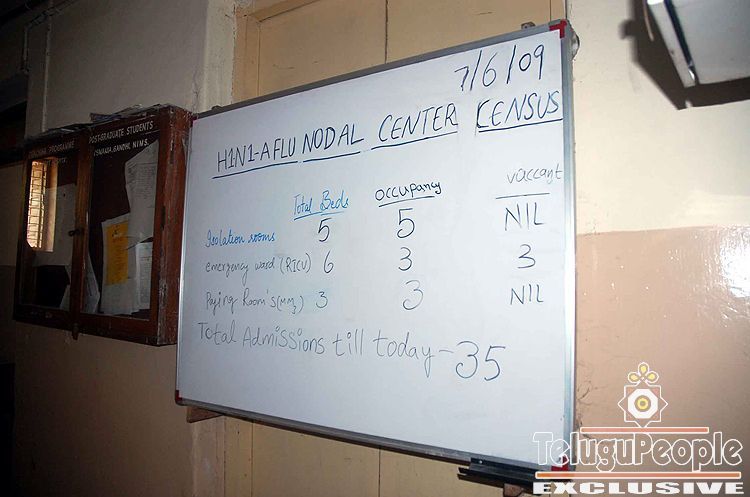 7/6/09
H1N1-A FLU NODAL CENTER CENSUS
Total Beds occupancy vaccant
Isolation rooms 5 5 NIL
emergency ward (RICU) 6 3 3
Paying Room's (MM3) 3 3 NIL
Total Admissions till today - 35
PROGRAMME
POST-GRADUATE STUDENTS
GANDHI, NIMS.
TeluguPeople
EXCLUSIVE